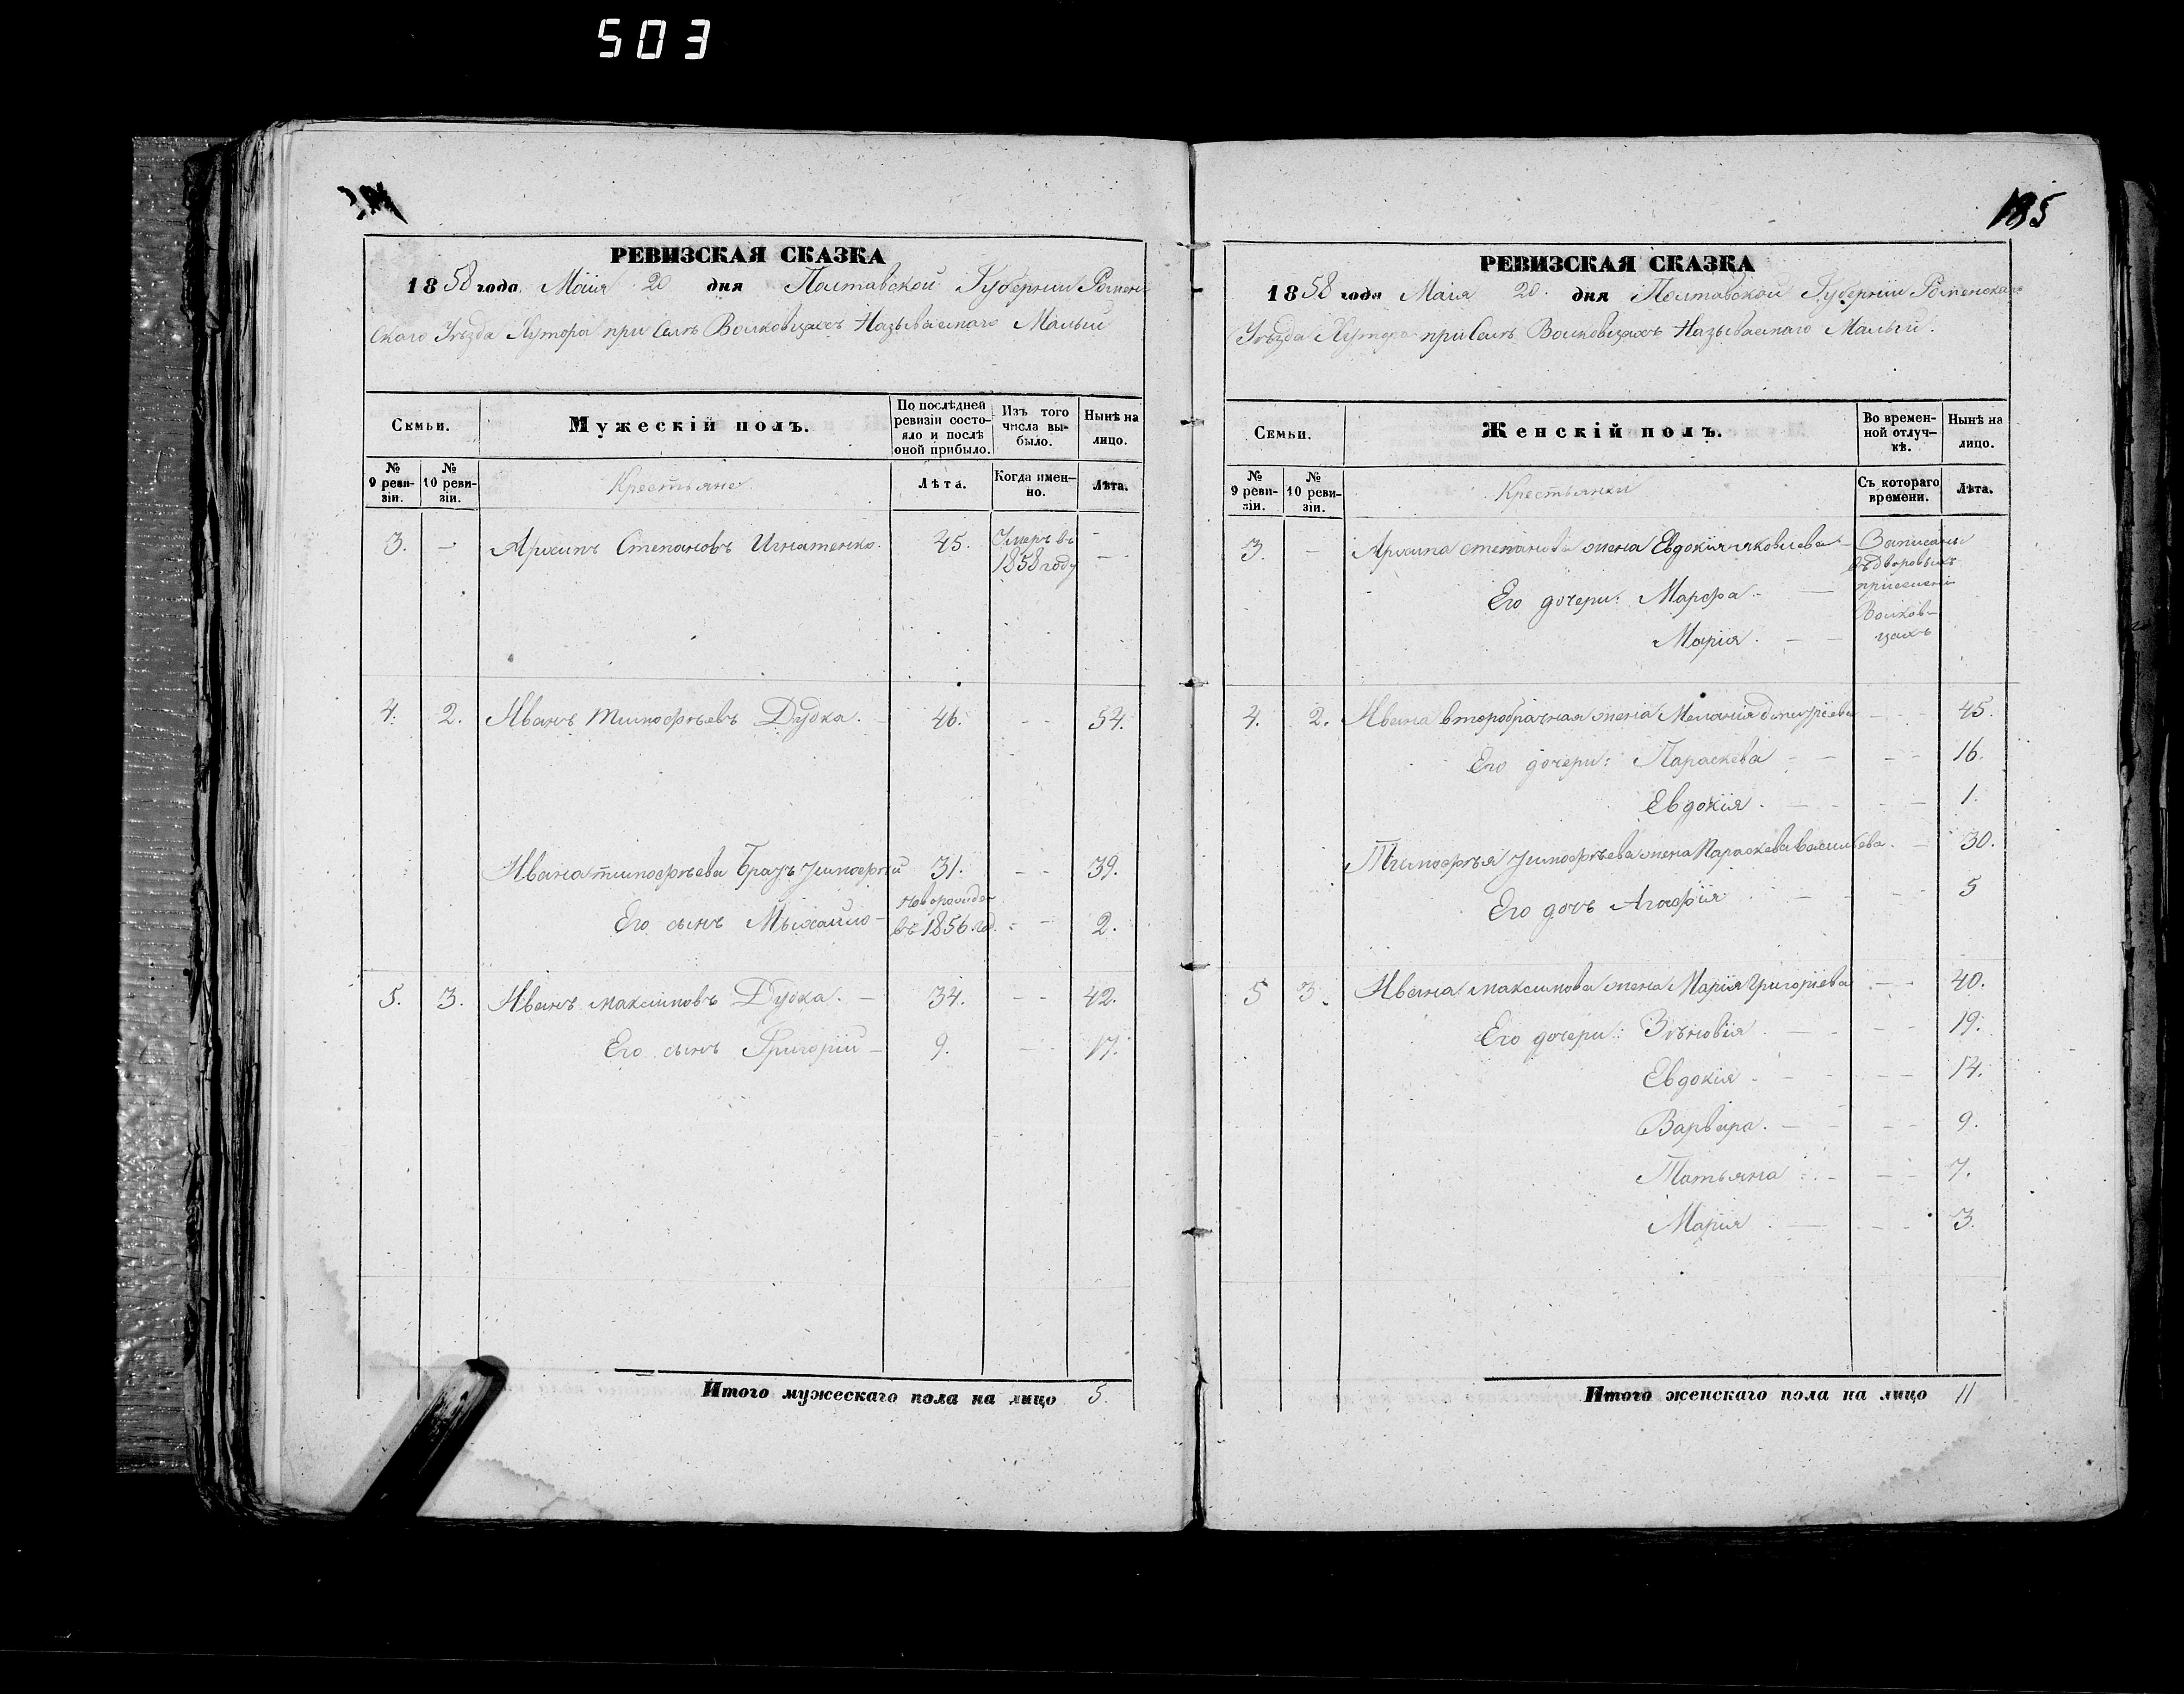 503
185
РЕВИЗСКАЯ СКАЗКА
1858 года Маія 20 дня Полтавской Губерніи Роменскаго Уѣзда Хутора при Селѣ Волковцахъ Называемаго Малый
Семьи.
Мужескій полъ.
По послѣдней ревизіи состояло и послѣ оной прибыло.
Изъ того числа выбыло.
Нынѣ на лицо.
№ 9 ревизіи.
№ 10 ревизіи.
Крестьяне
Лѣта.
Когда именно.
Лѣта.
3. — Архипъ Степановъ Игнатенко. 45. Умеръ въ 1858 году — —
4. 2. Иванъ тимофѣевъ Дудка. — 46. — — 54.
Ивана тимофѣева братъ тимофѣй 31. — — 39.
Его сынъ Михайло — новорожден въ 1856 год. — — 2.
5. 3. Иванъ максимовъ Дудка. — 34. — — 42.
Его сынъ Григорій — 9. — 17.
Итого мужескаго пола на лицо 5.
РЕВИЗСКАЯ СКАЗКА
1858 года Маія 20. дня Полтавской Губерніи Роменскаго
Уѣзда Хутора при Селѣ Волковцахъ Называемаго Малый.
Семьи.
Женскій полъ.
Во временной отлучкѣ.
Нынѣ на лицо.
№ 9 ревизіи.
№ 10 ревизіи.
Крестьянки
Съ котораго времени.
Лѣта.
3. — Архипа степанова жена Евдокія яковлева — Записаны въ дворовыхъ Волковцахъ
Его дочери: Марфа — —
Марія. — —
4. 2. Ивана второбрачная жена Меланія дмитріева — — 45.
Его дочери: Параскева — — — — 16.
Евдокія. — — — — 1.
Тимофѣя тимофѣева жена Параскева васильева. — 30.
Его дочь Агафія — — — — 5
5 3. Ивана максимова жена Марія Григоріева — — 40.
Его дочери: Зѣновія — — — — 19.
Евдокія — — — — 14.
Варвара. — — — — 9.
Татьяна — — — 7.
Марія. — — — 3.
Итого женскаго пола на лицо 11